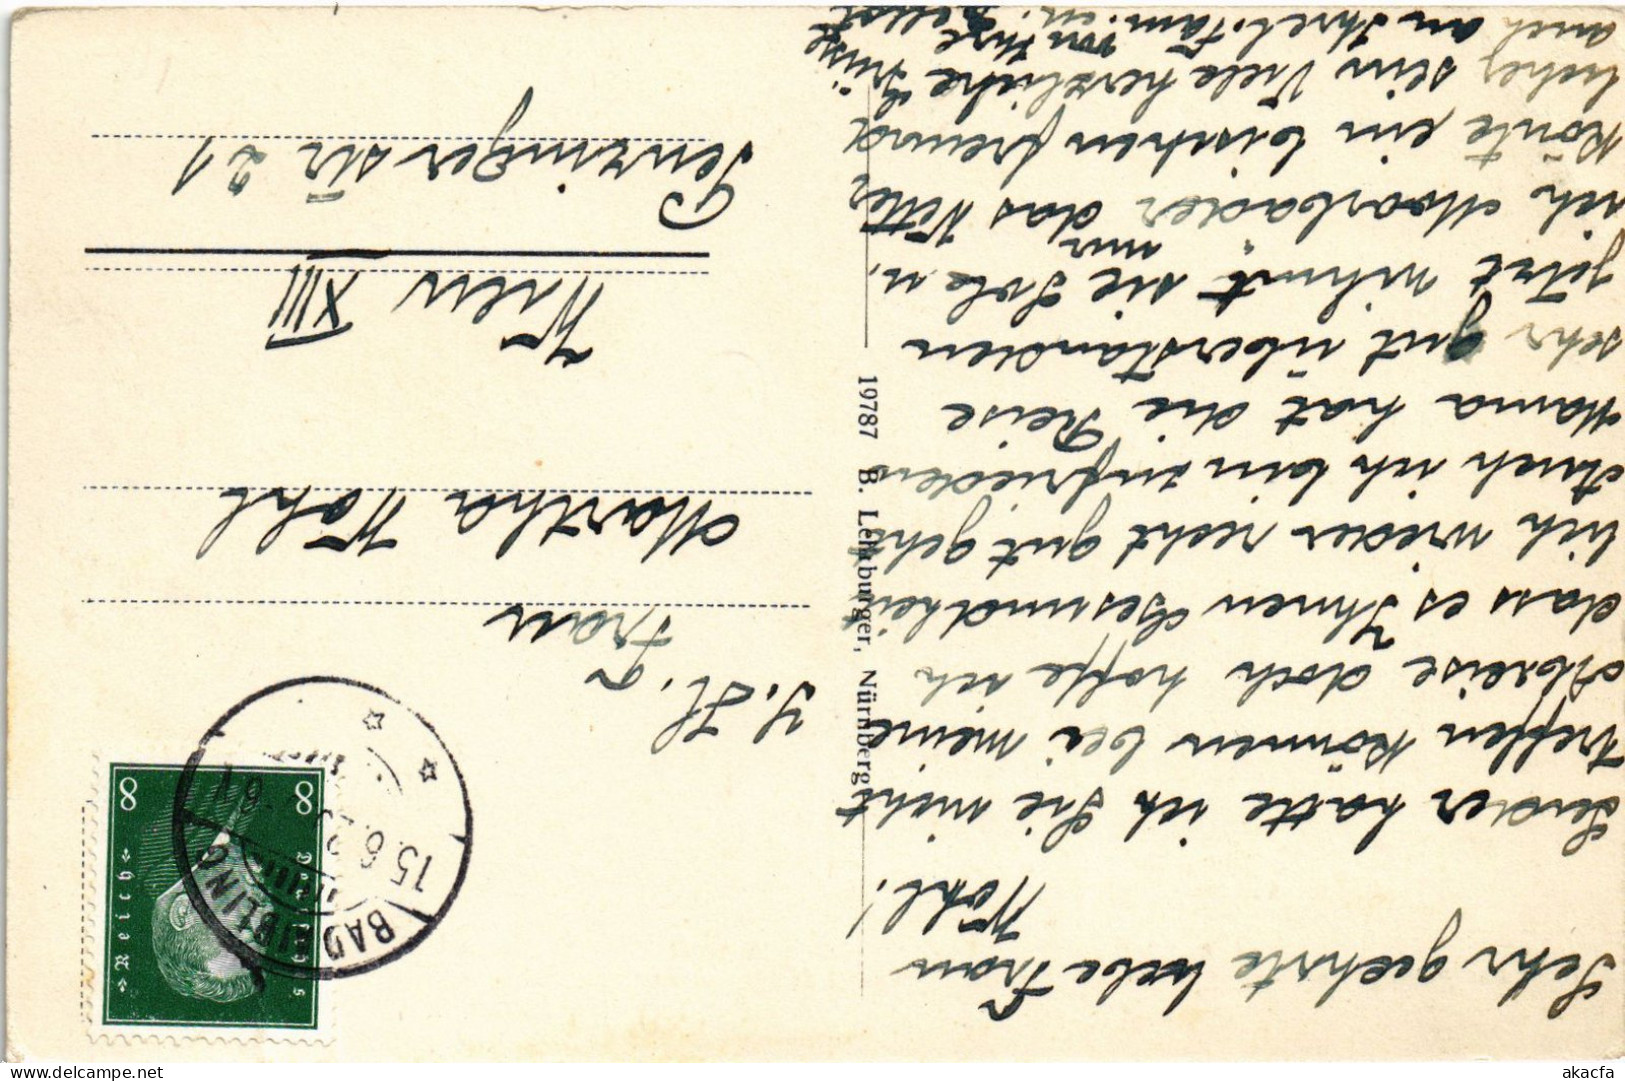 Sehr geehrte liebe Frau
Wöhl!
Leider hatte ich Sie nicht
treffen können bei meine
Abreise doch hoffe ich
dass es Ihnen Gesundheit
lich wieder recht gut geht
Auch ich bin zufrieden
Mama hat die Reise
sehr gut überstanden
jetzt nihmt sie Sole u.
nur
ich Moorbäder das Wetter
könte ein bischen freund
licher sein Viele herzliche Grüsse
auch an Ihre l. Fam. von Ihre
19787 B. Lehrburger, Nürnberg
I. H.
Frau
Martha Wöhl
Wien XIII
Penzingerstr 21
BAD AIBLING
15. 6.
Deutsches
Reich
8 8
akacfa